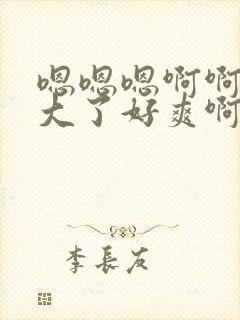 嗯嗯嗯啊啊
大了好爽啊
李長友